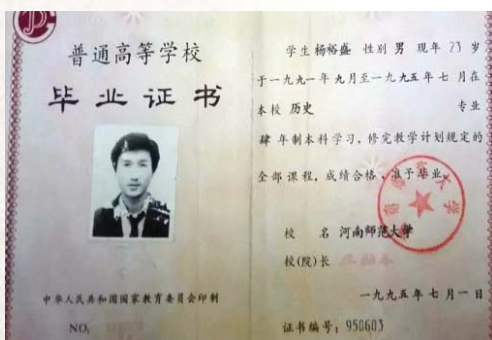 普通高等学校
毕业证书
中华人民共和国国家教育委员会印制
NO.
学生杨裕盛 性别 男 现年 23 岁
于一九九一年九月至一九九五年七月在
本校 历史 专业
肆 年制本科学习,修完教学计划规定的
全部课程,成绩合格,准予毕业。
校 名 河南师范大学
校(院)长
一九九五年七月一日
证书编号:950603